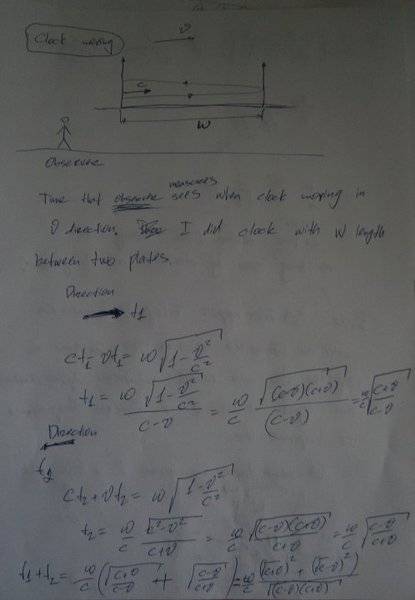 Clock moving
v
c
w
Observer
Time that observer sees measures when clock moving in
v direction. I did clock with w length
between two plates.
Direction
→ t₁
ct₁ - vt₁ = w√(1 - v²/c²)
t₁ = w √(1 - v²/c²) / (c - v) = w/c √((c-v)(c+v)) / (c-v) = w/c √((c+v)/(c-v))
Direction
t₂
ct₂ + vt₂ = w√(1 - v²/c²)
t₂ = w/c √(c² - v²) / (c+v) = w/c √((c-v)(c+v)) / (c+v) = w/c √((c-v)/(c+v))
t₁ + t₂ = w/c (√((c+v)/(c-v)) + √((c-v)/(c+v))) = w/c (√(c+v)² + √(c-v)²) / √((c-v)(c+v))